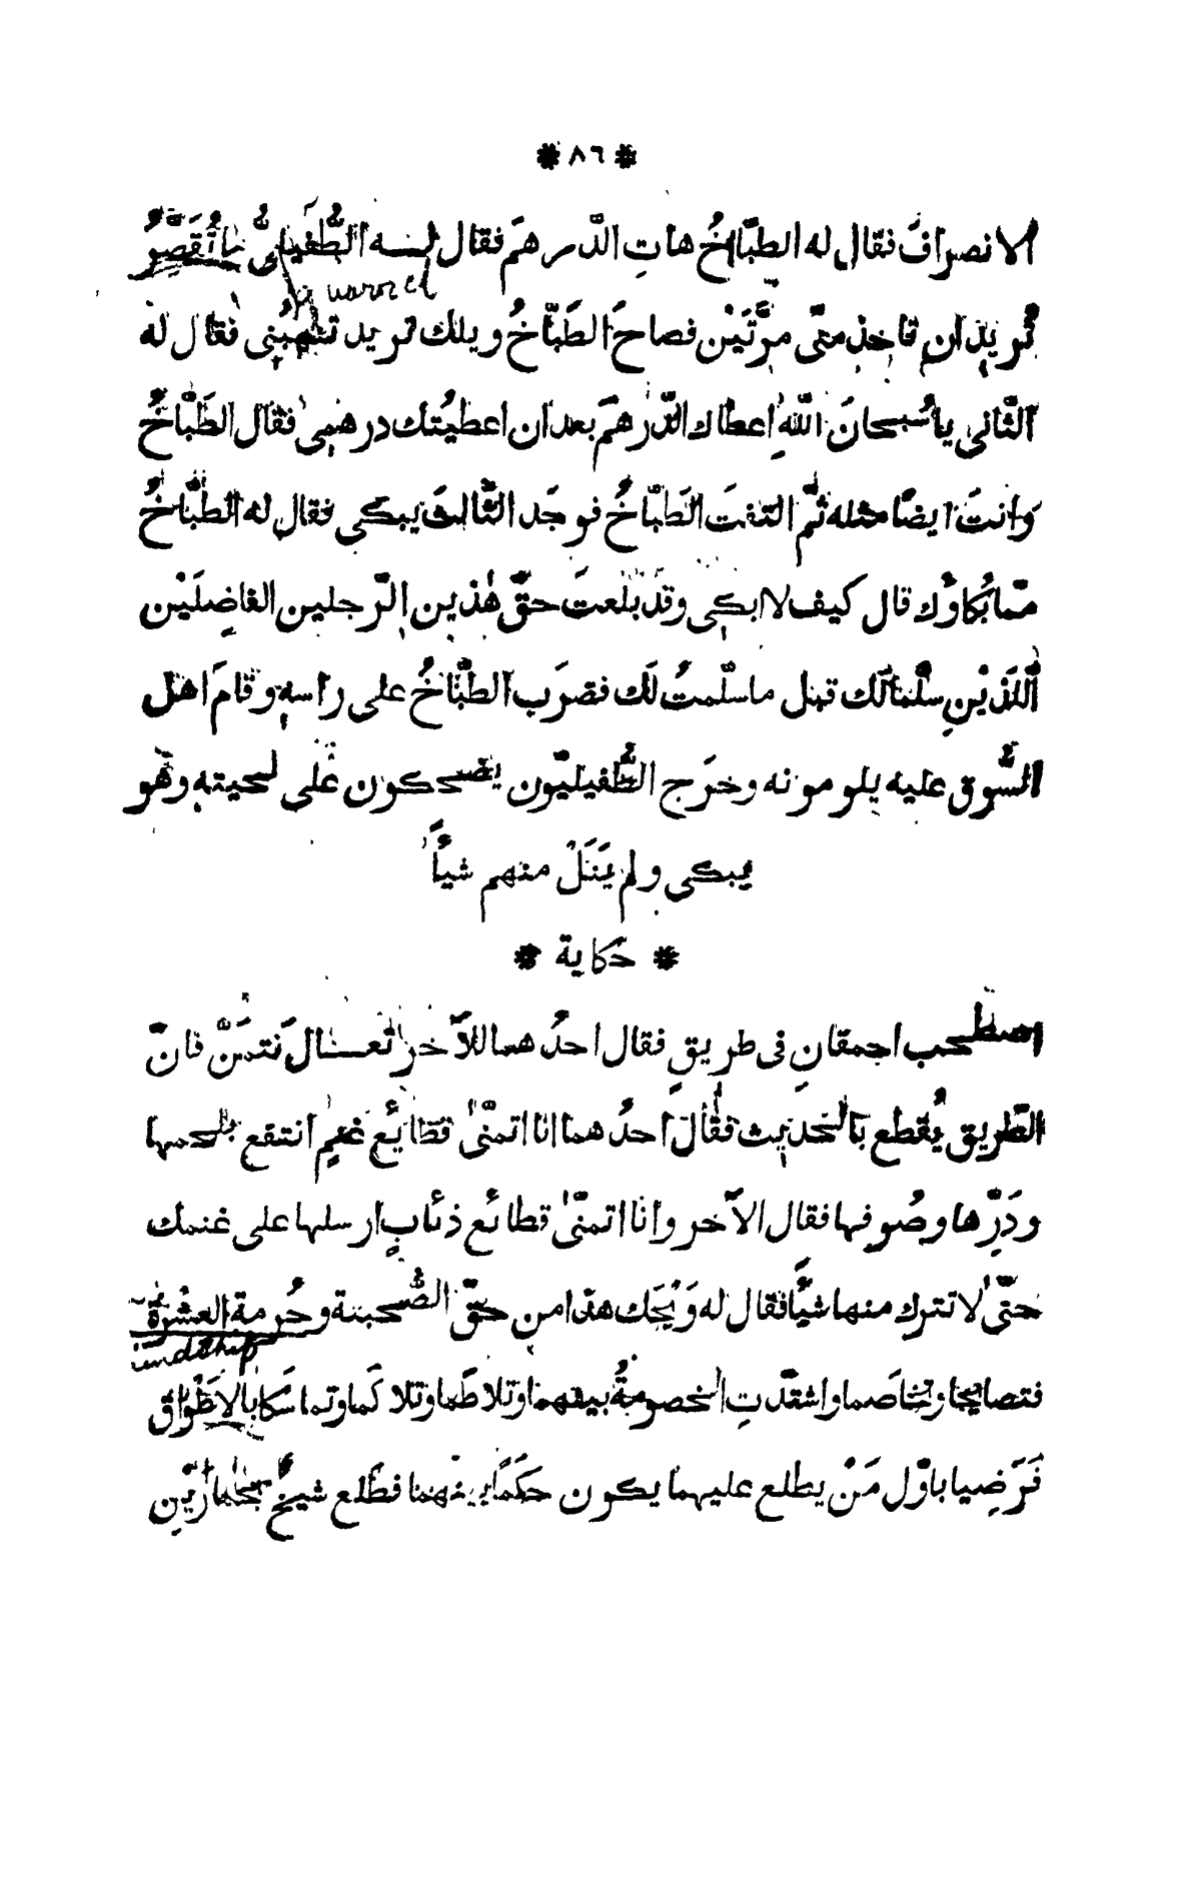 * ٨٦ *
الانصرافَ فقال له الطبّاخُ هاتِ الدّرهمَ فقال لــه الطُّفيلىُّ ما تُقَصِّرُ
تُريد ان تاخذ منّى مرَّتَيْن فصاحَ الطَبّاخُ ويلك تريد تنهبُنِى فقال له
الثّانى يا سُبحانَ اللّٰهِ اعطاك الدّرهمَ بعد ان اعطيُتك درهمِى فقال الطَبّاخُ
وانتَ ايضًا مثله ثمّ التفتَ الطَبّاخُ فوجَد الثّالثَ يبكى فقال له الطبّاخُ
ممّا بُكاؤُك قال كيف لا ابكى وقد بلعتَ حقَّ هٰذين الرّجلين الفاضِلَيْن
اللّذَيْنِ سلّمالَك قبل ما سلّمتُ لَك فضرَب الطبّاخُ على راسهِ وقامَ اهل
السُّوق عليه يلومونه وخرَج الطُّفيليّون يضحكون على لحيتهِ وهو
يبكى ولم يَنَلْ منهم شيأً
* حكاية *
اصطحب احمقانِ فى طريقٍ فقال احدُهما للآخر تعــالَ نتمَنَّ فانّ
الطّريق يُقطع بالحديث فقالَ احدُهما انا اتمنّىٰ قطائعَ غنمٍ انتفع بلحمها
ودَرِّها وصُوفِها فقال الآخر وانا اتمنّىٰ قطائعَ ذئابٍ ارسلها على غنمك
حتّىٰ لا تترك منها شيًّا فقال له وَيْحَك هذا من حقّ الصُّحبة وحُرمة العشرةِ
فتصايحا وتخاصما واشتدّتِ الخصومةُ بينهما وتلاطَما وتلاكَما وتماسَكا بالاطْواق
فَرَضِيا باوّل مَنْ يطلع عليهما يكون حَكَمًا بينهما فطلع شيخٌ بحمارَيْنِ